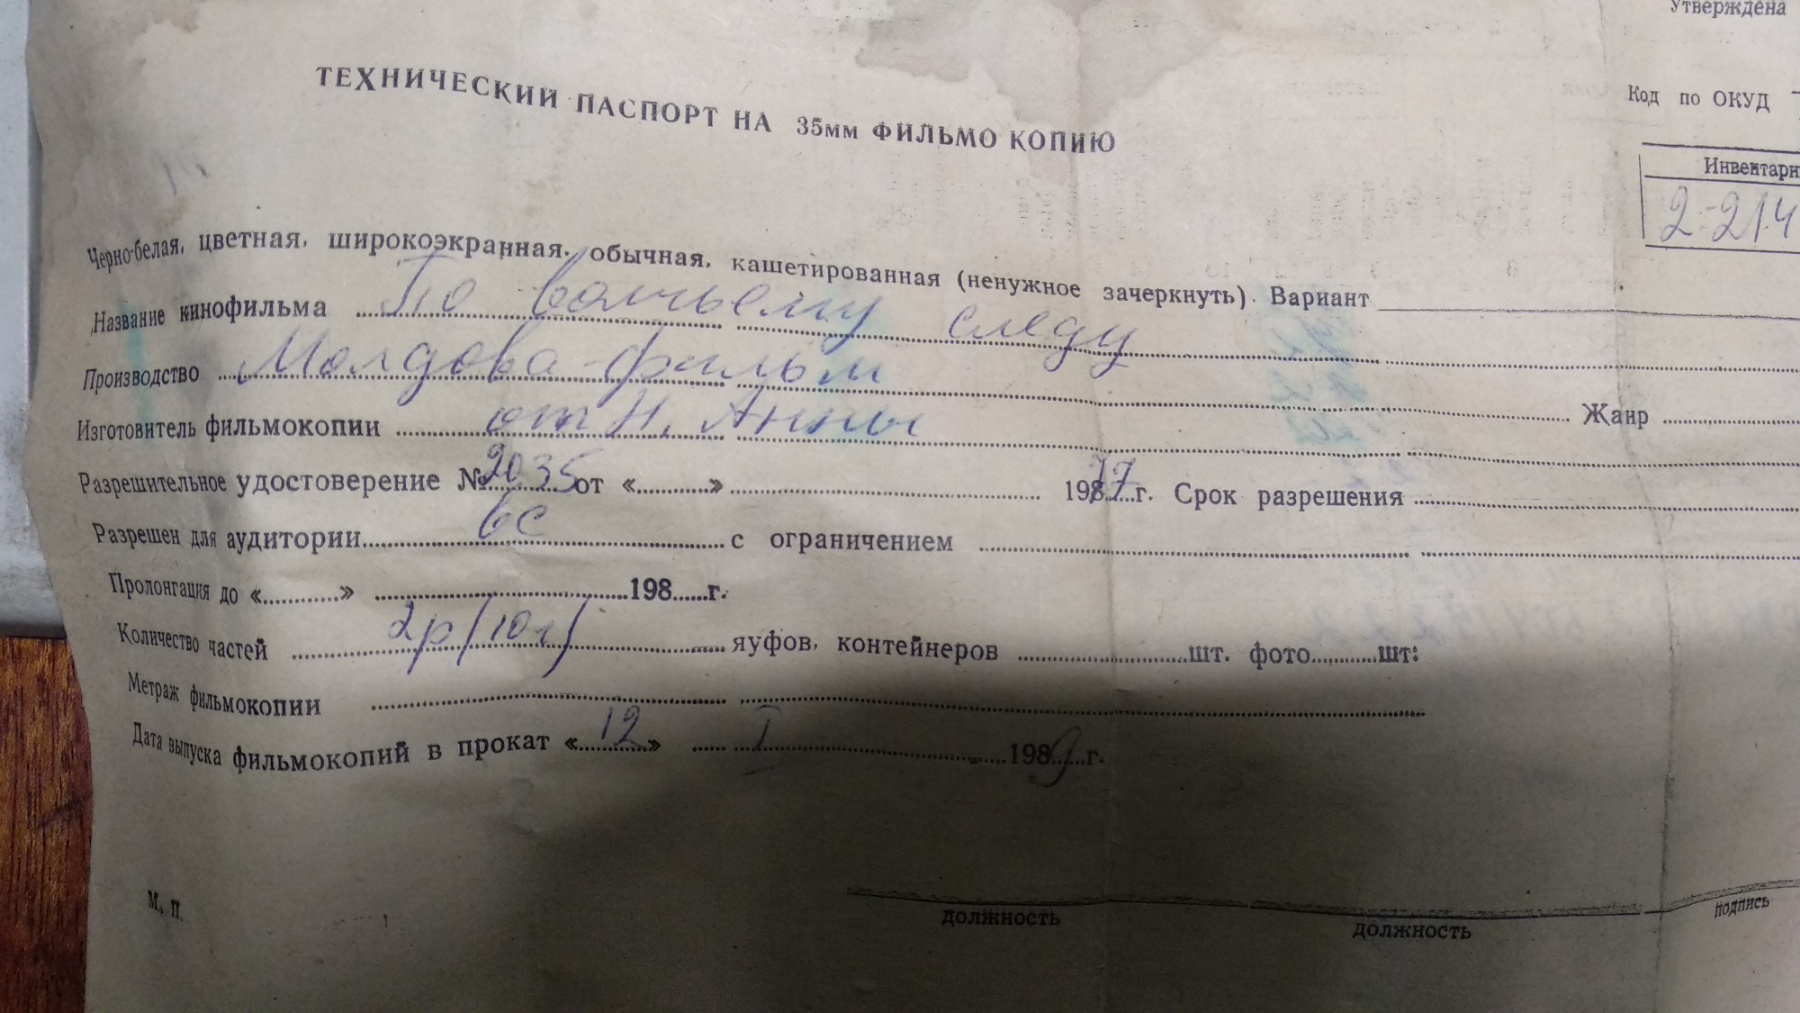 Утверждена
ТЕХНИЧЕСКИЙ ПАСПОРТ НА 35мм ФИЛЬМО КОПИЮ
Код по ОКУД
Инвентарн
2-214
Черно-белая, цветная, широкоэкранная, обычная, кашетированная (ненужное зачеркнуть). Вариант
Название кинофильма По волчьему следу
Производство Молдова-фильм Жанр
Изготовитель фильмокопии от Н. Анны
Разрешительное удостоверение № 2035 от «..........» 1977 г. Срок разрешения
Разрешен для аудитории вс с ограничением
Пролонгация до «..........» 198......г.
Количество частей 2р/10ч/ яуфов, контейнеров шт. фото шт:
Метраж фильмокопии
Дата выпуска фильмокопий в прокат «12» I 1989 г.
М. П.
должность
должность
подпись